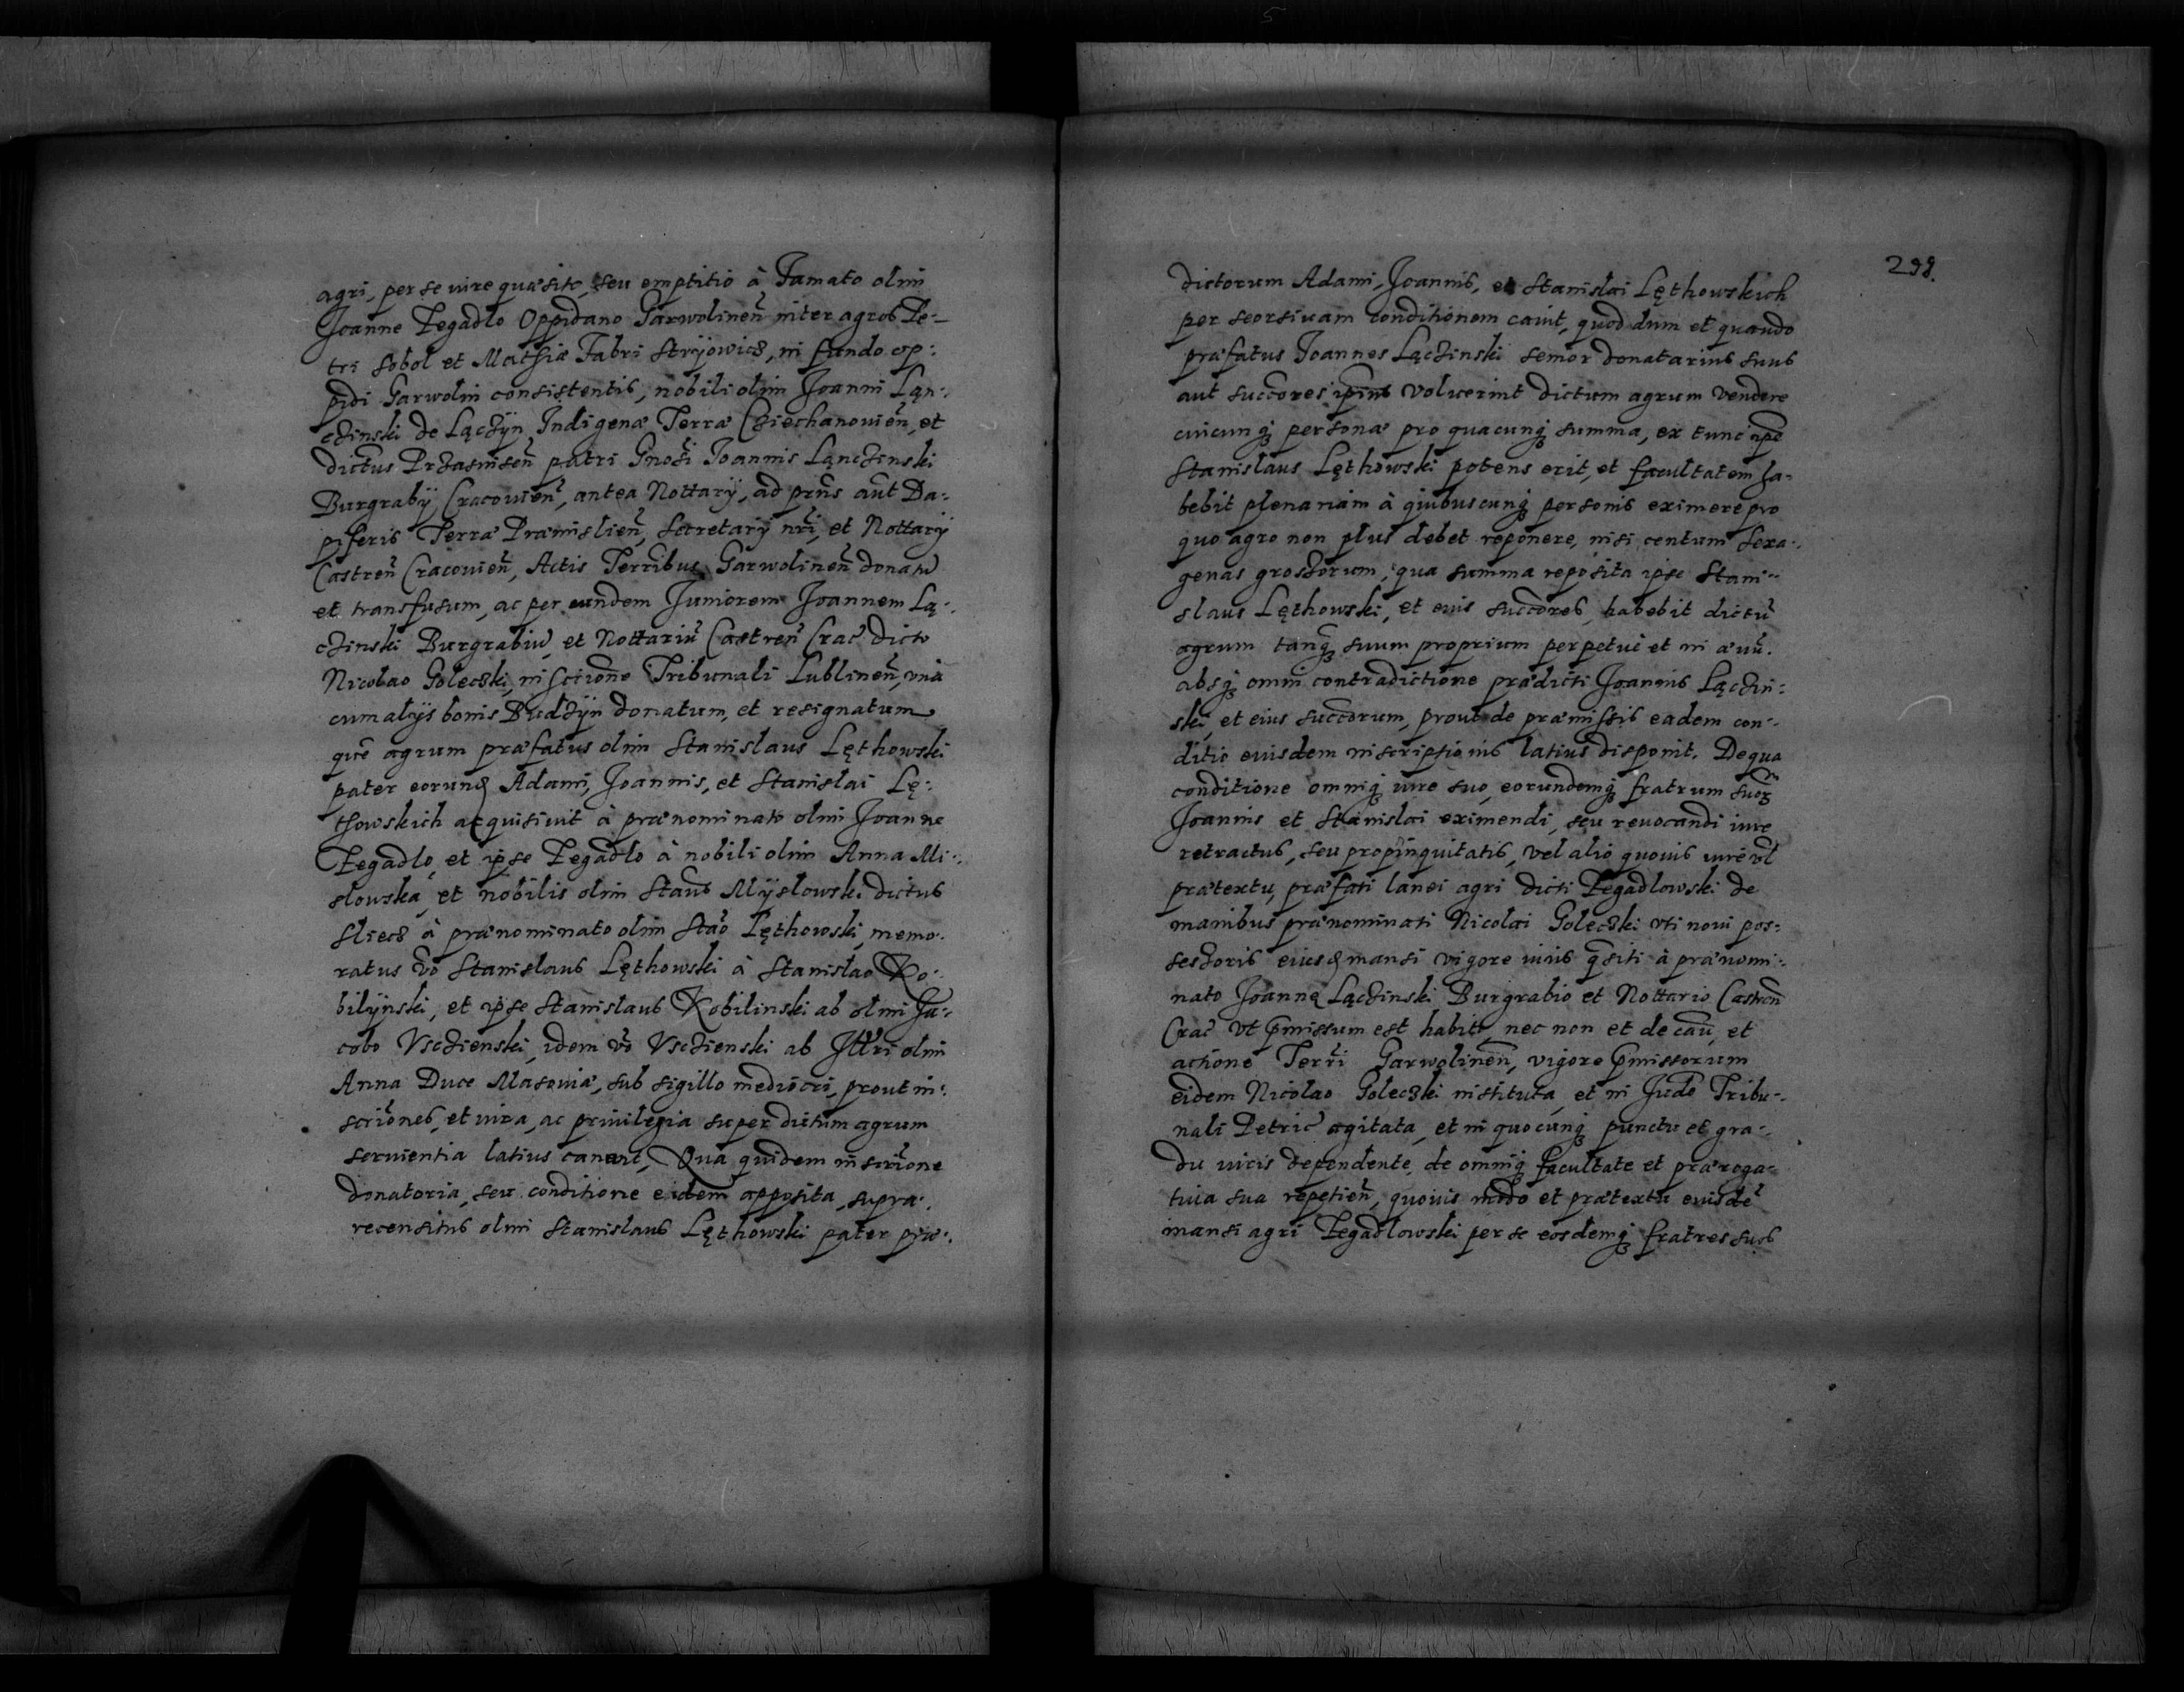 agri, per se iure quæsito, seu emptitio à Famato olim
Joanne Pegadlo Oppidano Garwolineñ inter agros Pe-
tri Sobol et Mathiæ Fabri Stryiowicz, in fundo op:
pidi Garwolin consistentis, nobili olim Joanni Lan:
czinski de Lączyn, Indigenæ Terræ Cziechanouieñ, et
dictus Przasniseñ patri Gnosi Joannis Lanczinski
Burgrabÿ Cracouieñ, antea Nottarÿ, ad prñs aũt Da:
piferis Terræ Præmislieñ, Secretarÿ nrĩ, et Nottarÿ
Castreñ Cracouieñ, Actis Terribus Garwolineñ donatũ
et transfusum, ac per eundem Juniorem Joannem Lą:
czinski Burgrabiũ, et Nottariũ Castreñ Crac dicto
Nicolao Goleczki, inscrione Tribunali Lublineñ, vnà
cum alÿs bonis Budzÿn donatum, et resignatum
quẽ agrum præfatus olim Stanislaus Lęthowski
pater eorund Adami, Joannis, et Stanislai Lę:
thowskich acquisiuit à prænominato olim Joanne
Pegadlo, et ipse Pegadlo à nobili olim Anna Mi:
slowska, et nobilis olim Staus Mÿslowski dictus
Sliecz à prænominato olim Stao Lęthowski, memo:
ratus vo Stanislaus Lęthowski à Stanislao Ko:
bilÿnski, et ipse Stanislaus Kobilinski ab olim Ja:
cobo Vsczienski, idem vo Vsczienski ab Illri olim
Anna Duce Masouiæ, sub sigillo mediocri, prout in:
scriones, et iura, ac priuilegia super dictum agrum
seruientia latius canunt, Qua quidem inscrione
donatoria, seu conditione eidem apposita, supra:
recensitus olim Stanislaus Lęthowski pater præ:
298.
dictorum Adami, Joannis, et Stanislai Lęthowskich
per seorsiuam conditionem cauit, quod dum et quando
præfatus Joannes Lączinski senior donatarius suus
aut succores ipius voluerint dictum agrum vendere
cuicunq personæ pro quacunq summa, ex tunc ipe
Stanislaus Lęthowski potens erit, et facultatem ha-
bebit plenariam à quibuscunq personis eximere pro
quo agro non plus debet reponere, nisi centum sexa:
genas grossorum, qua summa reposita ipse Stani:
slaus Lęthowski, et eius succores, habebit dictũ
agrum tanq suum proprium perpetuè et in æuũ.
absq omni contradictione prædicti Joannis Lączin:
ski, et eius succorum, prout de præmissis eadem con:
ditio eiusdem inscriptionis latius disponit. De qua
conditione omniq iure suo, eorundemq fratrum suorz
Joannis et Stanislai eximendi, seu reuocandi iure
retractus, seu propinquitatis, vel alio quouis iure vl
prætextu, præfati lanei agri dicti Pegadlowski de
manibus prænominati Nicolai Goleczki vti noui pos:
sessoris eiusd mansi vigore iuris qsiti à prænomi:
nato Joanne Lączinski Burgrabio et Nottario Castreñ
Crac vt pmissum est habito, nec non et de cau, et
actione Terri Garwolineñ, vigore pmissorum
eidem Nicolao Goleczki instituta, et in Judo Tribu:
nali Petric agitata, et in quocunq punctu et gra:
du iuris dependente, de omniq facultate et præroga:
tiua sua repetieñ, quouis modo et prætextu eiusdẽ
mansi agri Pegadlowski per se eosdemq fratres suos